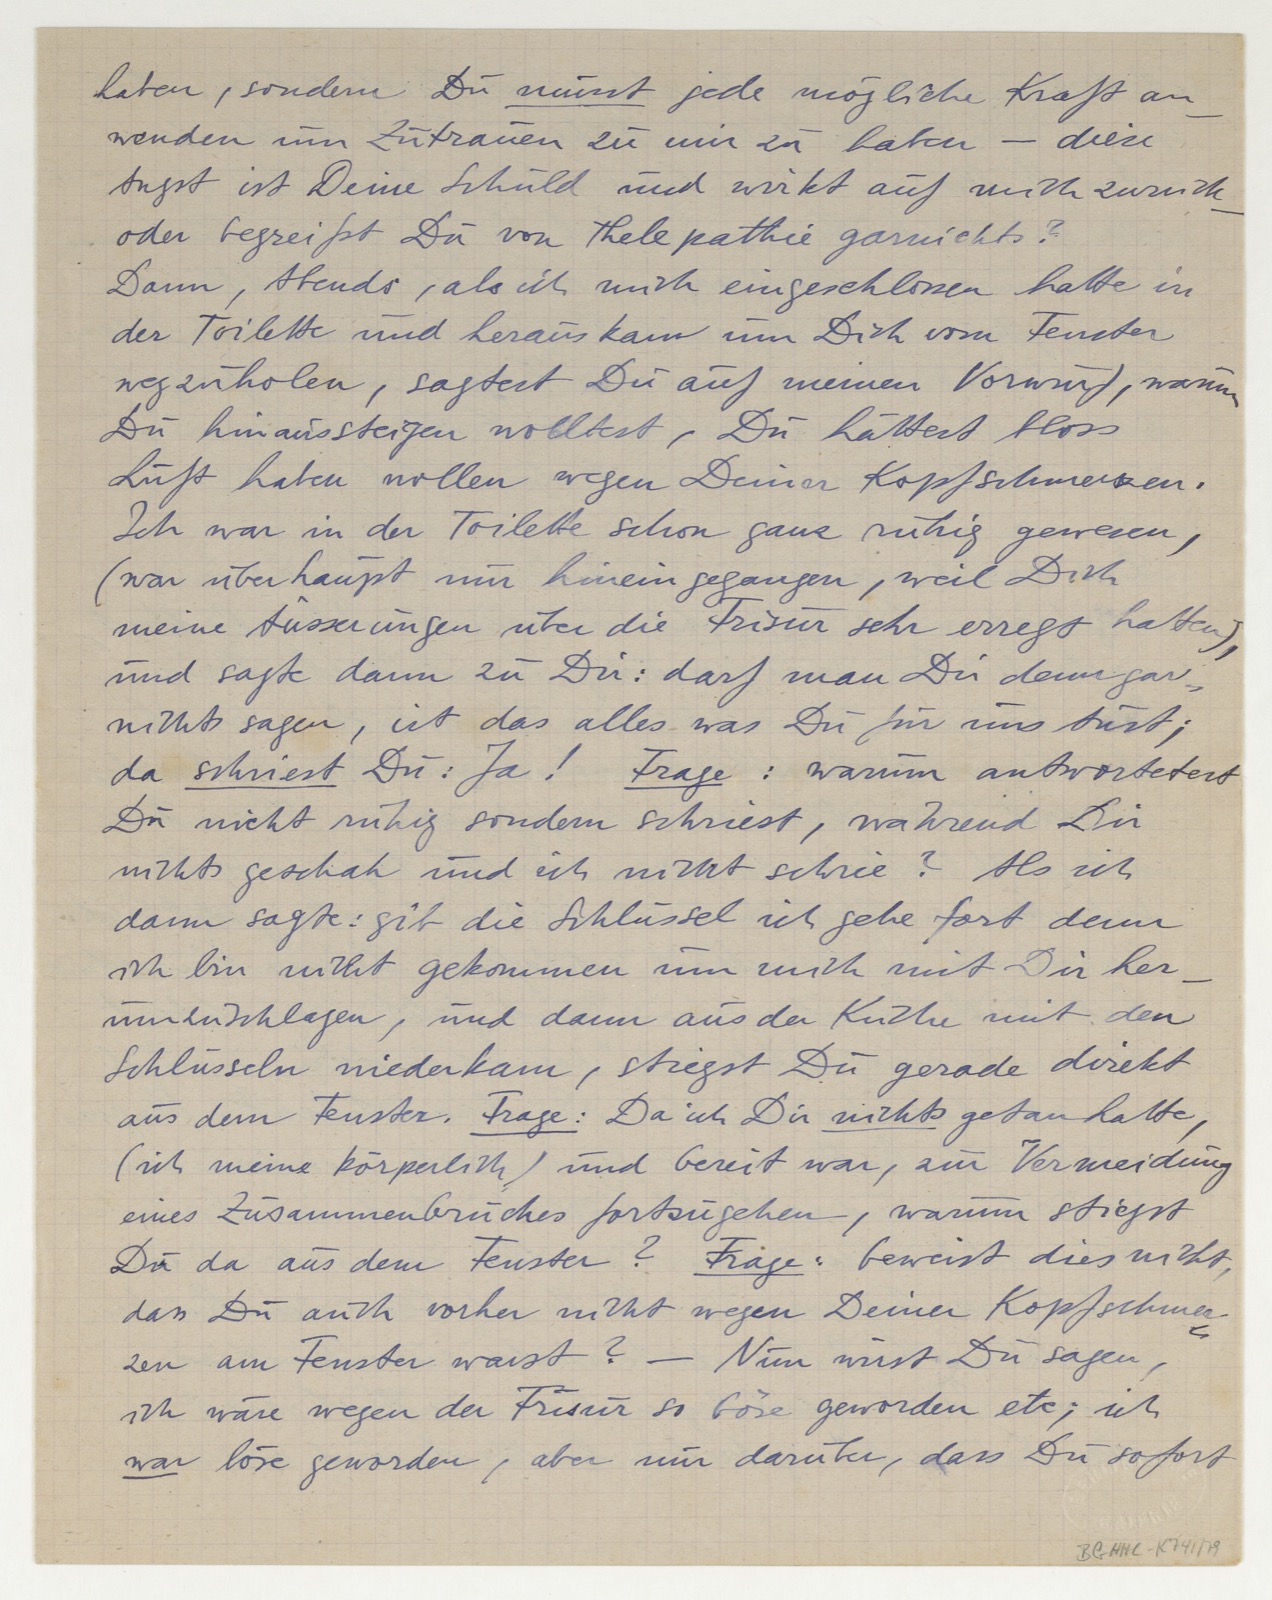 haben, sondern Du musst jede mögliche Kraft an-
wenden um Zutrauen zu mir zu haben — diese
Angst ist Deine Schuld und wirkt auf mich zurück-
oder begreifst Du von Thelepathie garnichts?
Dann, Abends, als ich mich eingeschlossen hatte in
der Toilette und herauskam um Dich vom Fenster
wegzuholen, sagtest Du auf meinen Vorwurf, warum
Du hinaussteigen wolltest, Du hättest bloss
Luft haben wollen wegen Deiner Kopfschmerzen.
Ich war in der Toilette schon ganz ruhig gewesen,
(war überhaupt nur hineingegangen, weil Dich
meine Äusserungen über die Frisur sehr erregt hatten),
und sagte dann zu Dir: darf man Dir denn gar-
nichts sagen, ist das alles was Du für uns tust;
da schriest Du: Ja! Frage: warum antwortetest
Du nicht ruhig sondern schriest, während Dir
nichts geschah und ich nicht schrie? Als ich
dann sagte: gib die Schlüssel ich gehe fort denn
ich bin nicht gekommen um mich mit Dir her-
umzuschlagen, und dann aus der Küche mit den
Schlüsseln wiederkam, stiegst Du gerade direkt
aus dem Fenster. Frage: Da ich Dir nichts getan hatte,
(ich meine körperlich) und bereit war, zur Vermeidung
eines Zusammenbruches fortzugehen, warum stiegst
Du da aus dem Fenster? Frage: beweist dies nicht,
dass Du auch vorher nicht wegen Deiner Kopfschmer-
zen am Fenster warst? — Nun wirst Du sagen,
ich wäre wegen der Frisur so böse geworden etc; ich
war böse geworden, aber nur darüber, dass Du sofort
BG-HHC-K741/79